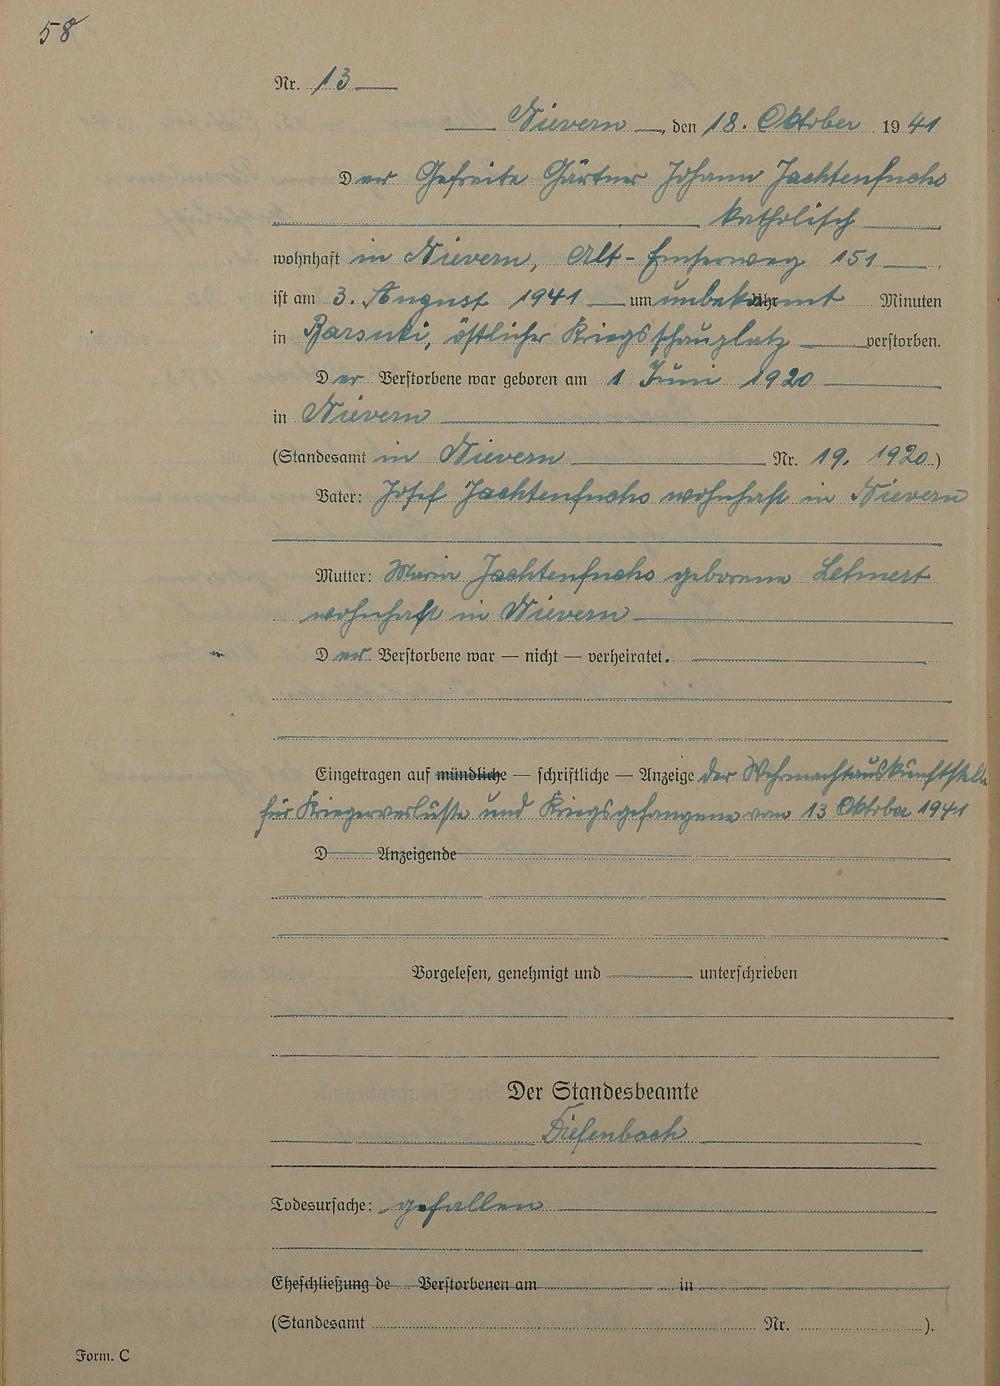 58
Nr. 13
Nievern, den 18. Oktober 1941
Der Gefreite Gärtner Johann Jachtenfuchs
katholisch
wohnhaft in Nievern, Alt-Emserweg 151,
ist am 3. August 1941 um unbekannt Uhr Minuten
in Barsuki, östlicher Kriegsschauplatz verstorben.
Der Verstorbene war geboren am 1 Juni 1920
in Nievern
(Standesamt in Nievern Nr. 19. 1920.)
Vater: Josef Jachtenfuchs wohnhaft in Nievern
Mutter: Maria Jachtenfuchs geborene Lehnert
wohnhaft in Nievern
Der Verstorbene war — nicht — verheiratet.
Eingetragen auf mündliche — schriftliche — Anzeige der Wehrmachtauskunftstelle
für Kriegerverluste und Kriegsgefangene vom 13 Oktober 1941
D Anzeigende
Vorgelesen, genehmigt und unterschrieben
Der Standesbeamte
Diefenbach
Todesursache: gefallen
Eheschließung de Verstorbenen am in
(Standesamt Nr. ).
Form. C